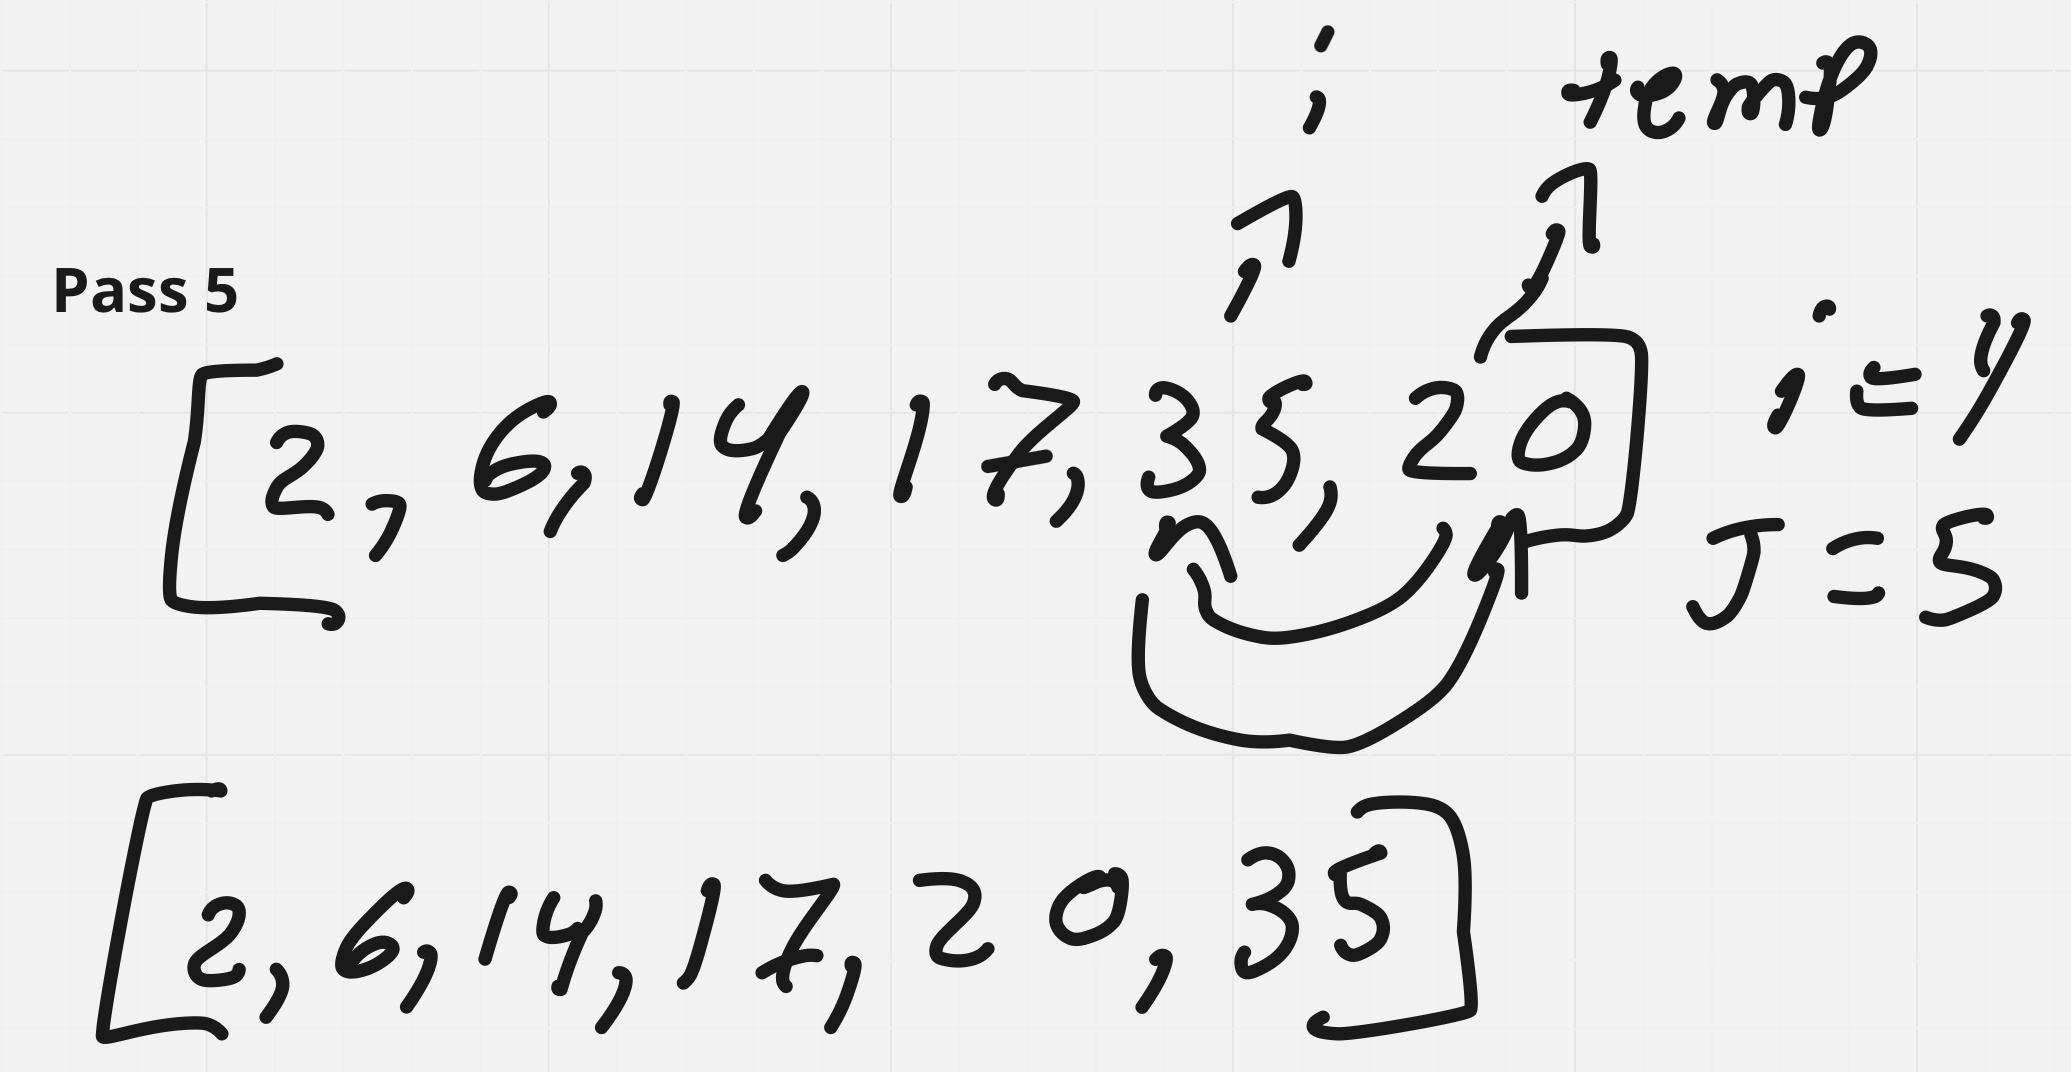 i temp
Pass 5
[2, 6, 14, 17, 35, 20]
i = 4
J = 5
[2, 6, 14, 17, 20, 35]